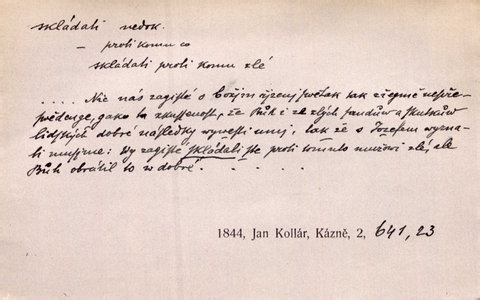 skládati nedok.
— proti komu co
skládati proti komu zlé
.... Nic nás zagisté o Božjm řjzenj swěta tak zřegmě nepře-
swědčuge, gako ta zkussenost, že Bůh i ze zlých saudůw a skutkůw
lidských dobré následky wywesti umj. Tak že s Jozefem wyzna-
ti musjme: Wy zagisté skládali ste proti tomuto mužowi zlé, ale
Bůh obrátil to w dobré. . . . . .
1844, Jan Kollár, Kázně, 2, 641, 23